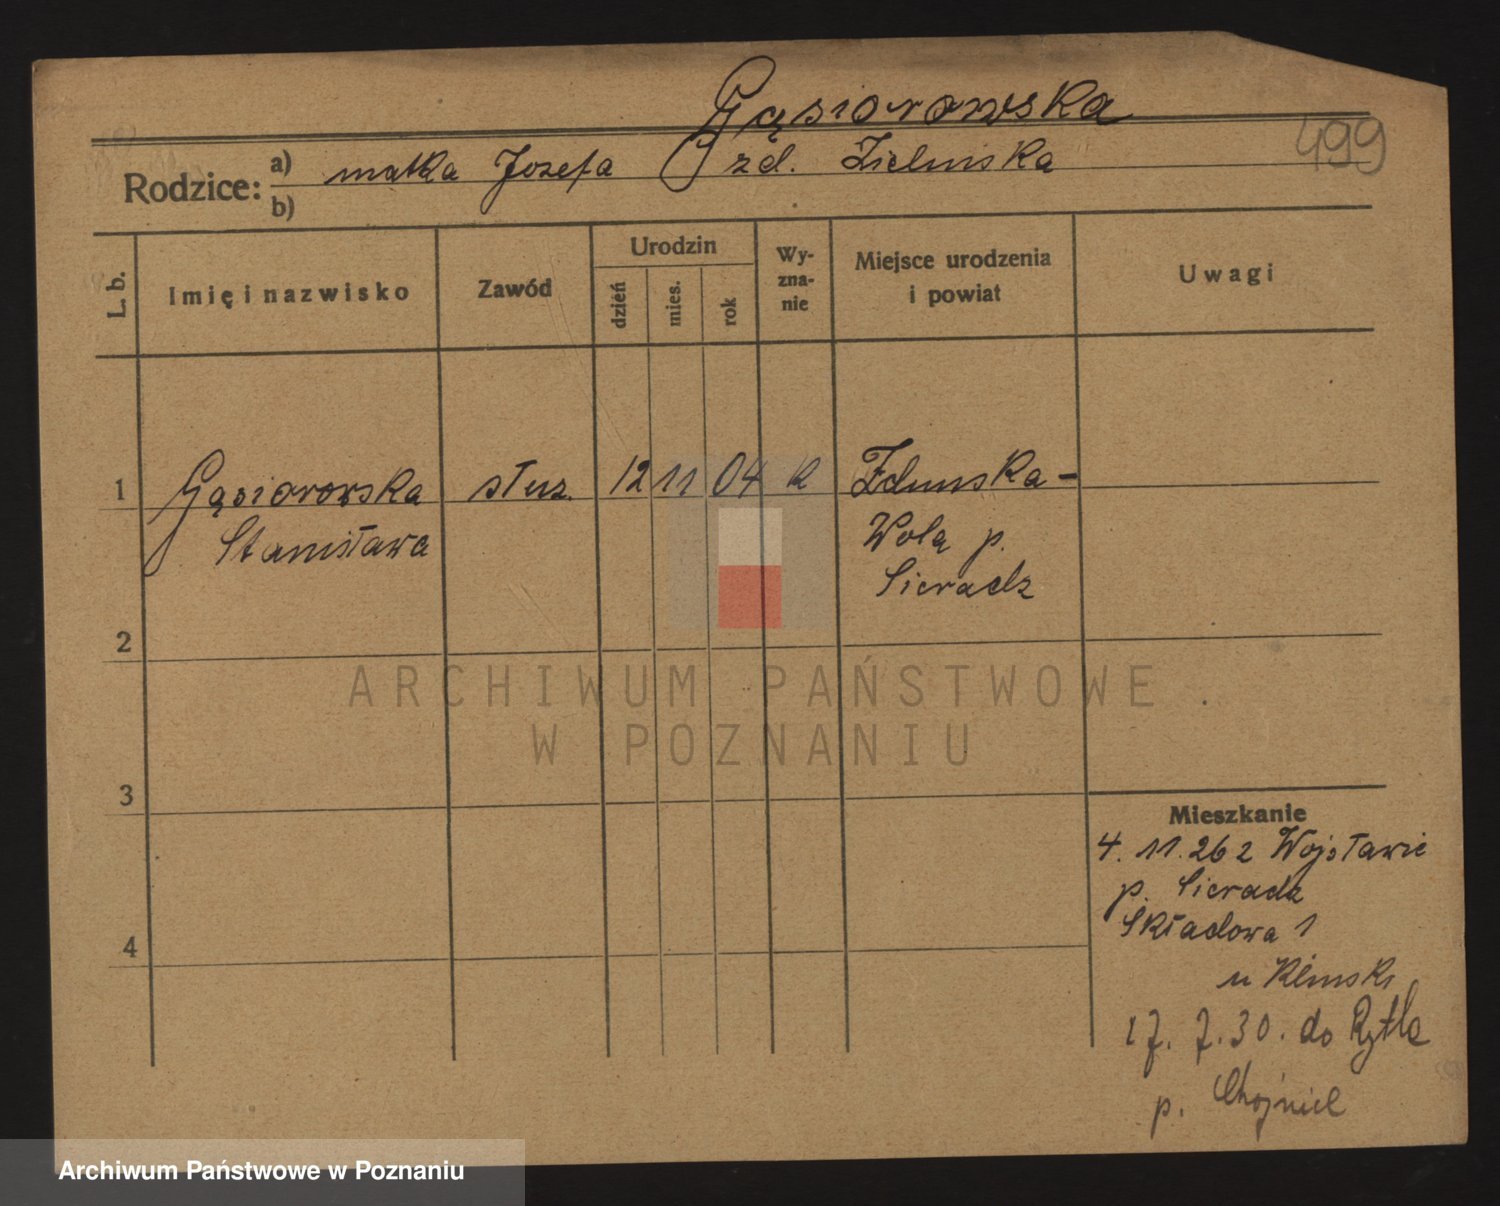 Gąsiorowska
499
Rodzice: a) matka Józefa zd. Zielińska
b)
L. b.
Imię i nazwisko
Zawód
Urodzin
dzień
mies.
rok
Wy-
zna-
nie
Miejsce urodzenia
i powiat
Uwagi
1 Gąsiorowska służ. 12 11 04 k Zduńska-
Stanisława Wola p.
Sieradz
2
3
4
Mieszkanie
4. 11. 26 z Wojsławic
p. Sieradz
Składowa 1
u Klinski
17. 7. 30. do Rytla
p. Chojnice
ARCHIWUM PAŃSTWOWE
W POZNANIU
Archiwum Państwowe w Poznaniu